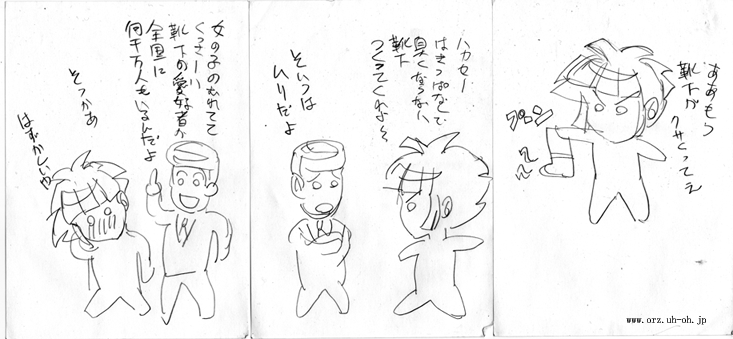 ああもう
靴下が
クサくってえ
ハカセー
はきっぱなしで
臭くならない
靴下
つくってくれよ〜
そいつは
ムリだよ
女の子のむれてて
くっさーい
靴下の愛好者が
全国に
何千万人もいるんだよ
そっかあ
www.orz.uh-oh.jp